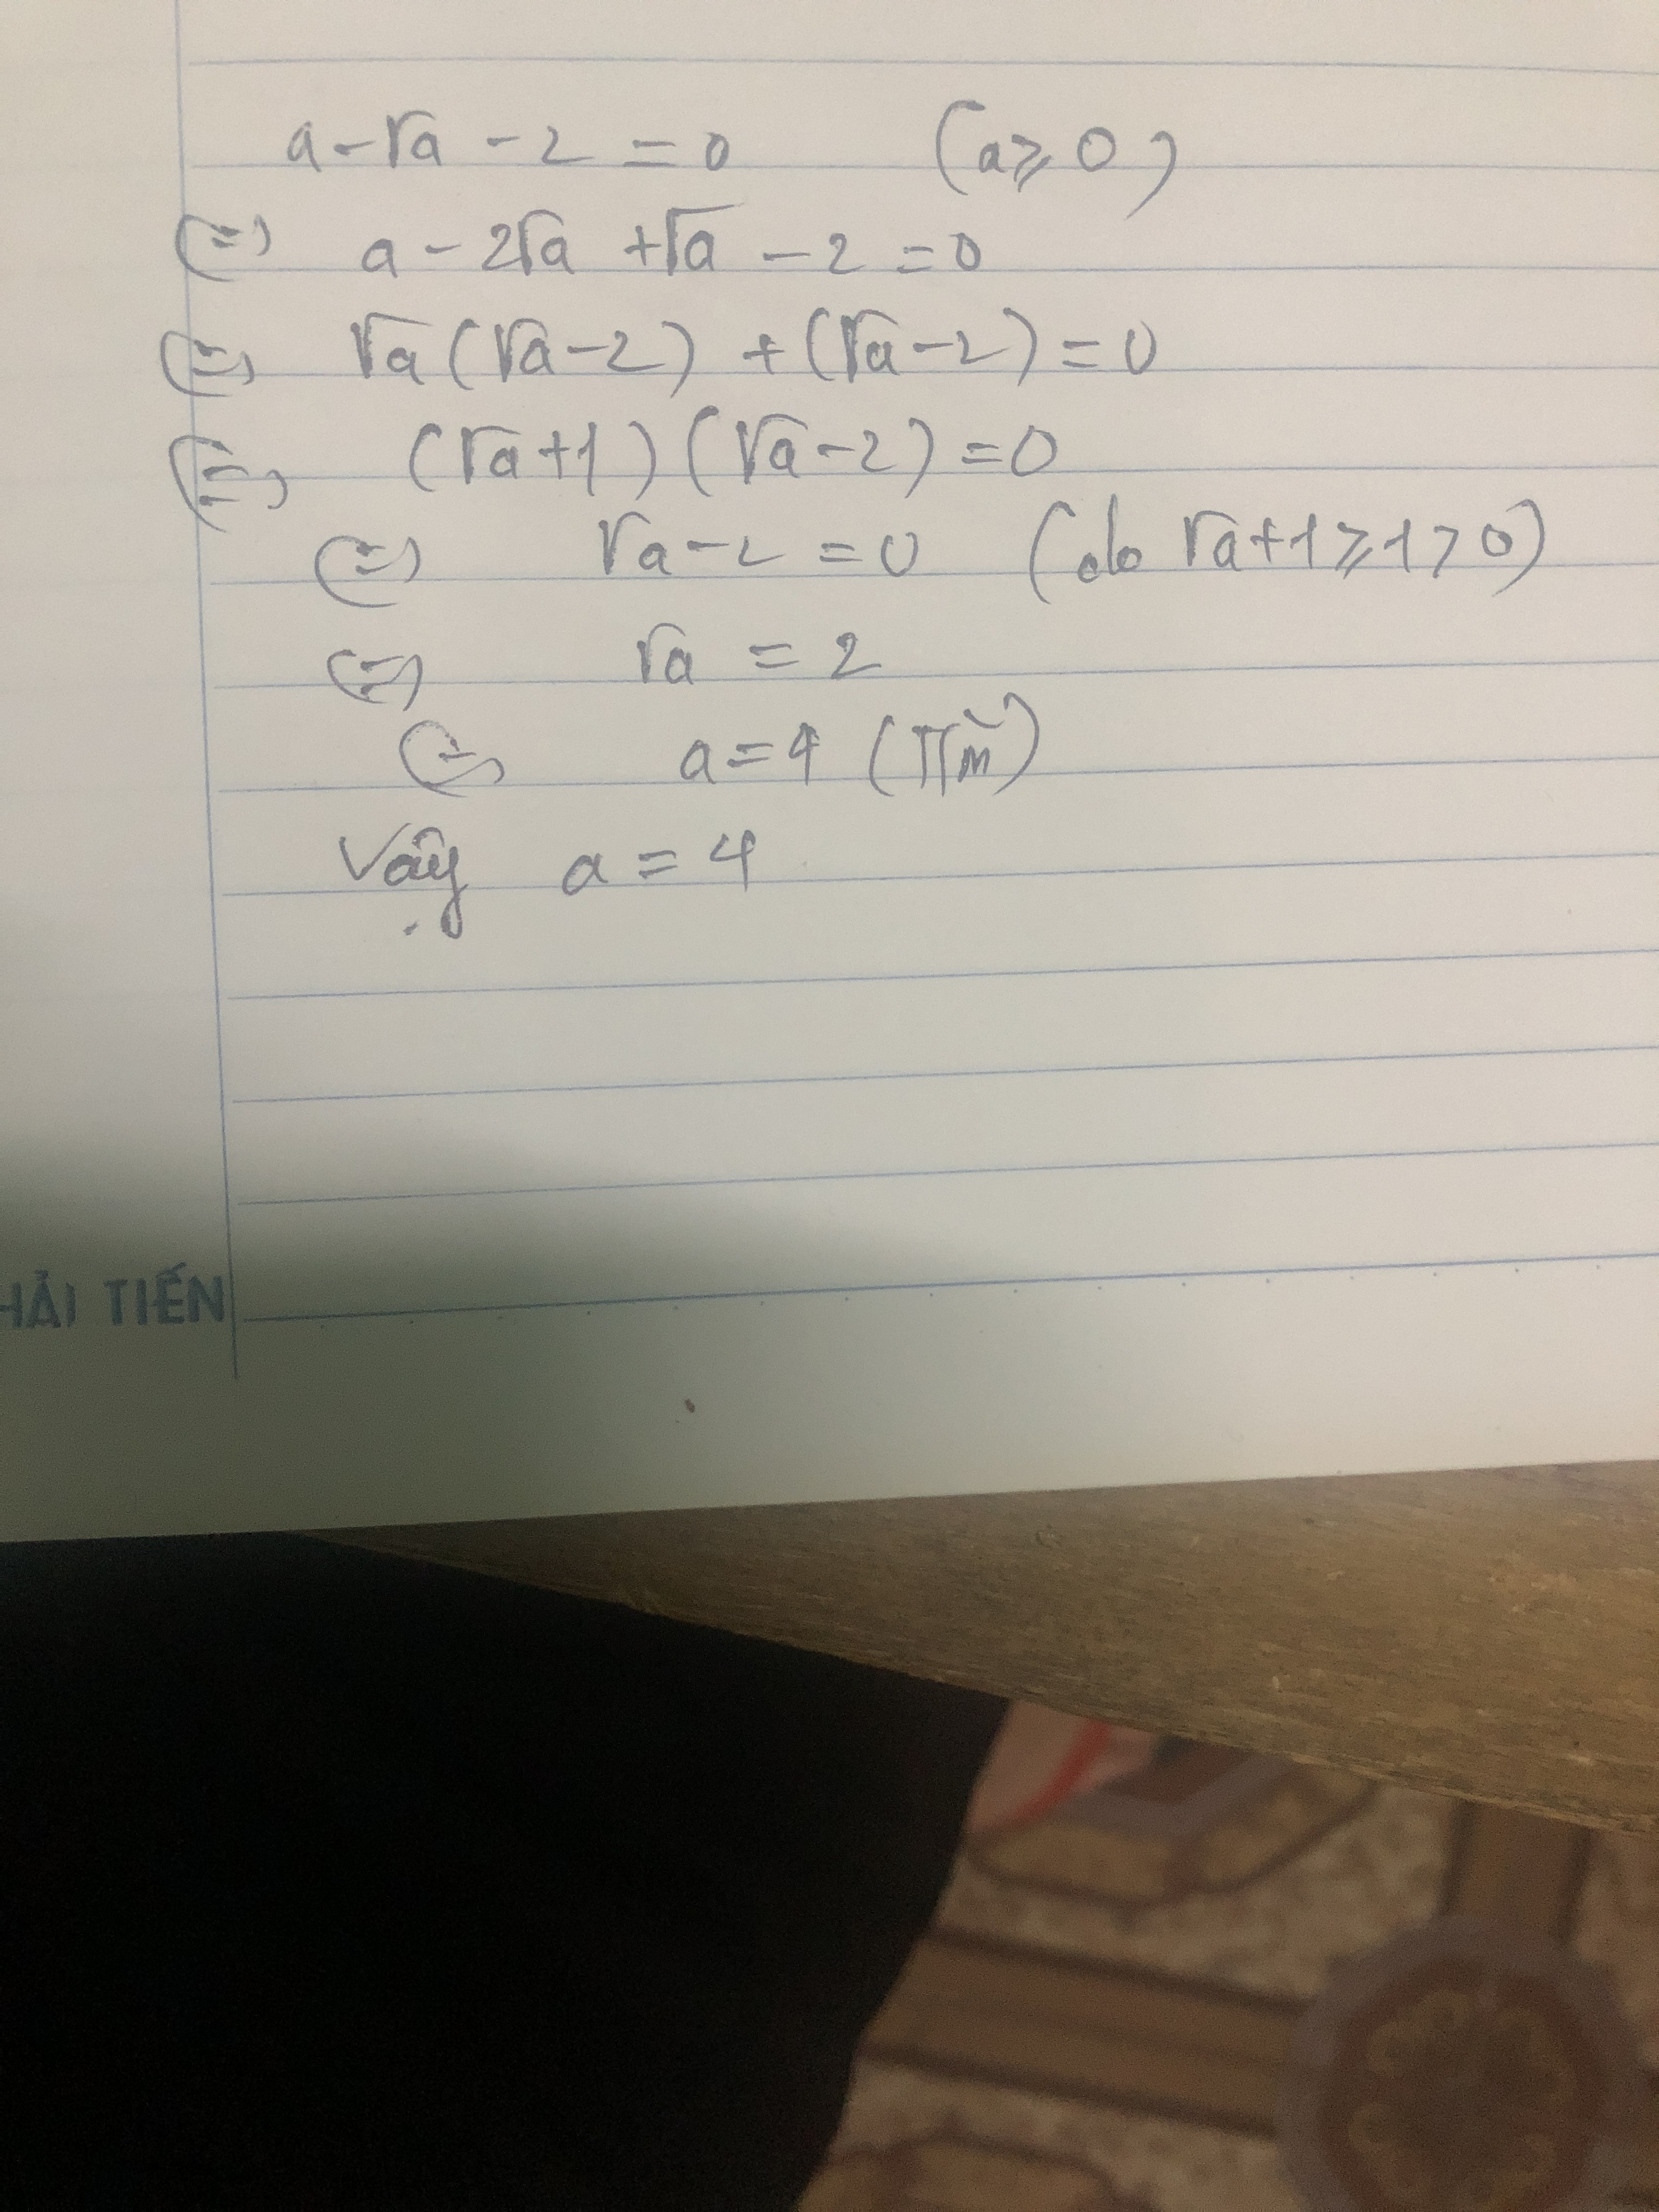 a - √a - 2 = 0 (a ≥ 0)
(=) a - 2√a + √a - 2 = 0
(=) √a (√a - 2) + (√a - 2) = 0
(=) (√a + 1) (√a - 2) = 0
(=) √a - 2 = 0 (do √a + 1 ≥ 1 > 0)
(=) √a = 2
(=) a = 4 (TM)
Vậy a = 4
HẢI TIẾN